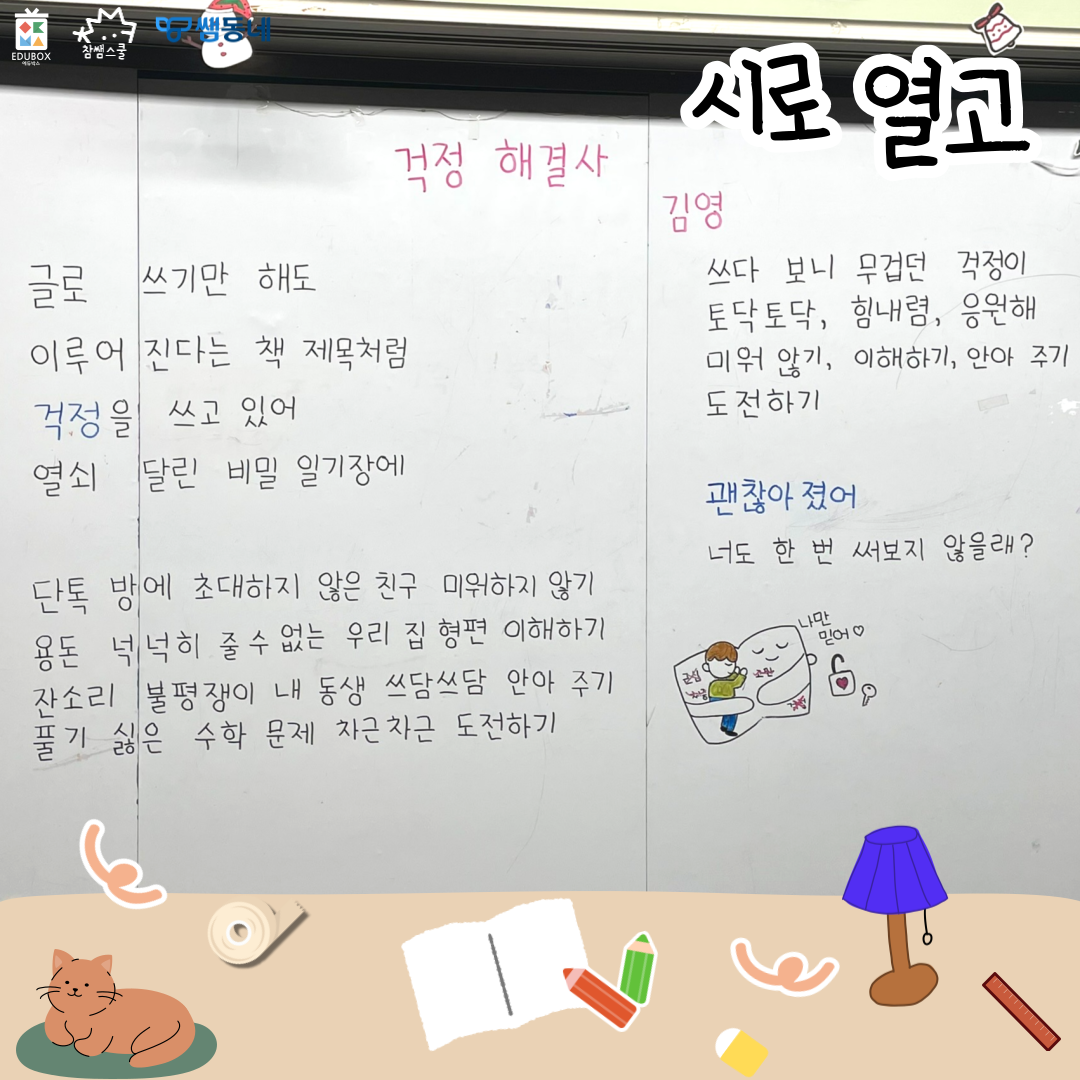 EDUBOX
에듀박스
참쌤스쿨
쌤동네
시로 열고
걱정 해결사
김영
글로 쓰기만 해도
이루어진다는 책 제목처럼
걱정을 쓰고 있어
열쇠 달린 비밀 일기장에
단톡 방에 초대하지 않은 친구 미워하지 않기
용돈 넉넉히 줄 수 없는 우리 집 형편 이해하기
잔소리 불평쟁이 내 동생 쓰담쓰담 안아 주기
풀기 싫은 수학 문제 차근차근 도전하기
쓰다 보니 무겁던 걱정이
토닥토닥, 힘내렴, 응원해
미워 않기, 이해하기, 안아 주기
도전하기
괜찮아졌어
너도 한 번 써보지 않을래?
나만
믿어♡